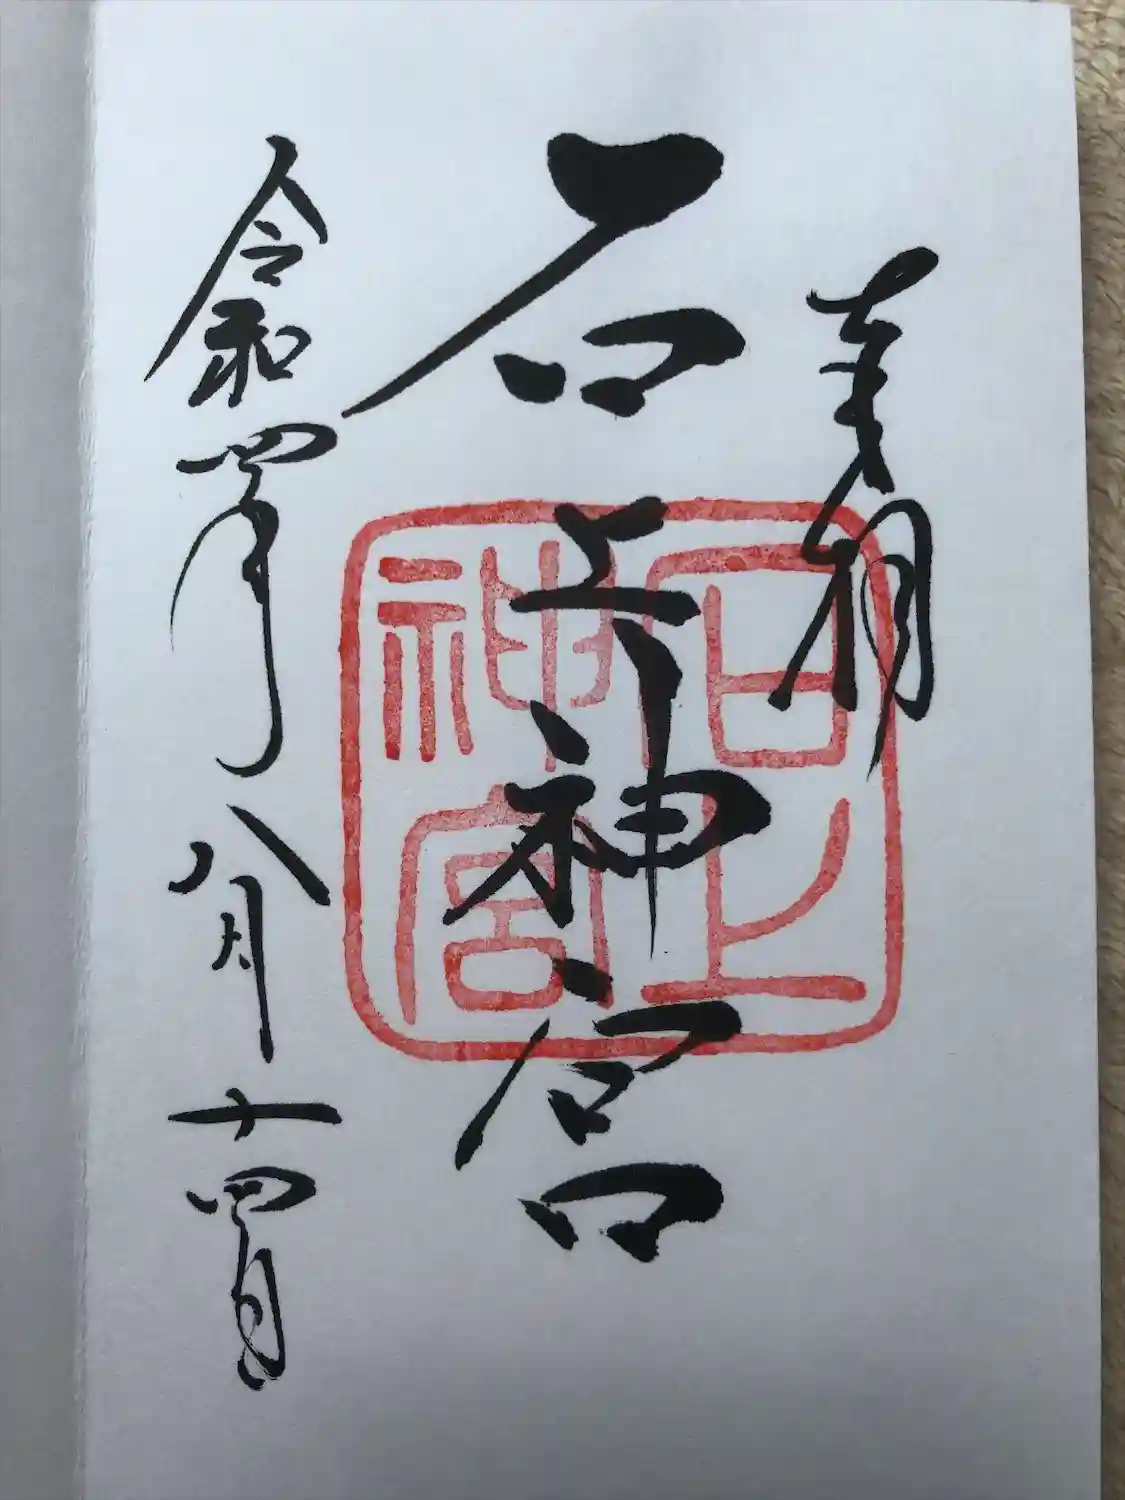 奉拝
石上神宮
石上神宮
令和四年八月十四日